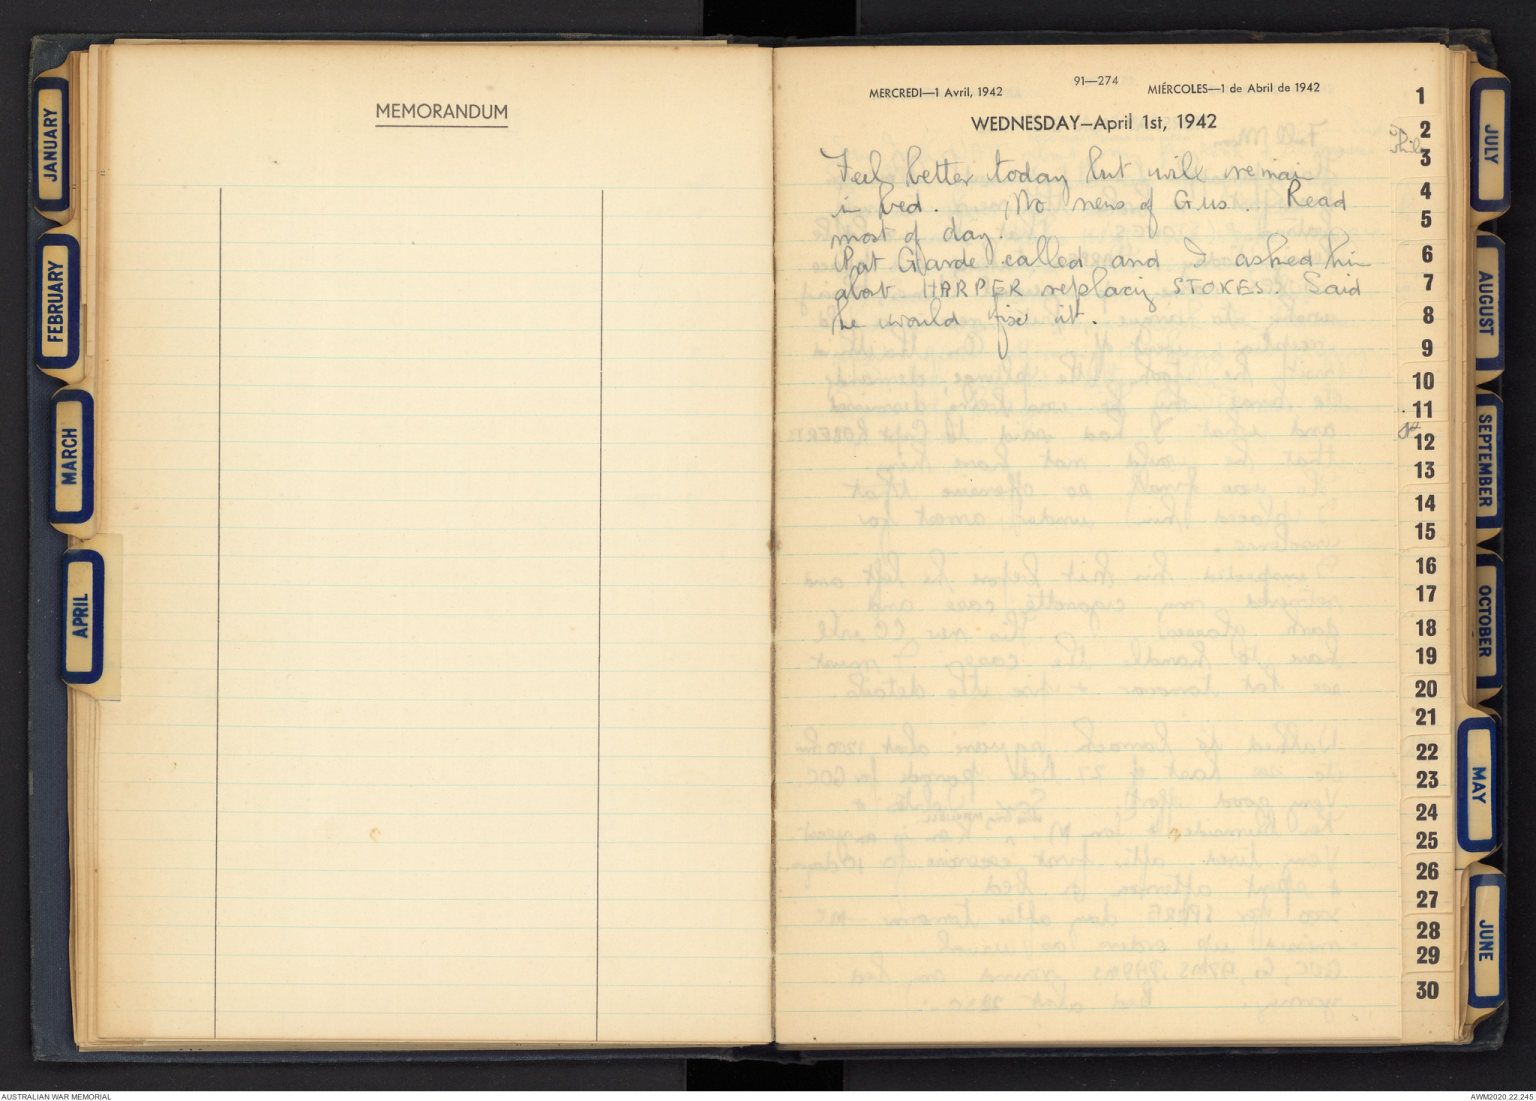 MEMORANDUM
91—274
MERCREDI—1 Avril, 1942
MIÉRCOLES—1 de Abril de 1942
WEDNESDAY—April 1st, 1942
Feel better today but will remain
in bed. No news of Gus. Read
most of day.
Pat Garde called and I asked him
about HARPER replacing STOKES Said
he would fix it.
JANUARY
FEBRUARY
MARCH
APRIL
1
2
3
4
5
6
7
8
9
10
11
12
13
14
15
16
17
18
19
20
21
22
23
24
25
26
27
28
29
30
JULY
AUGUST
SEPTEMBER
OCTOBER
MAY
JUNE
AUSTRALIAN WAR MEMORIAL
AWM2020.22.245